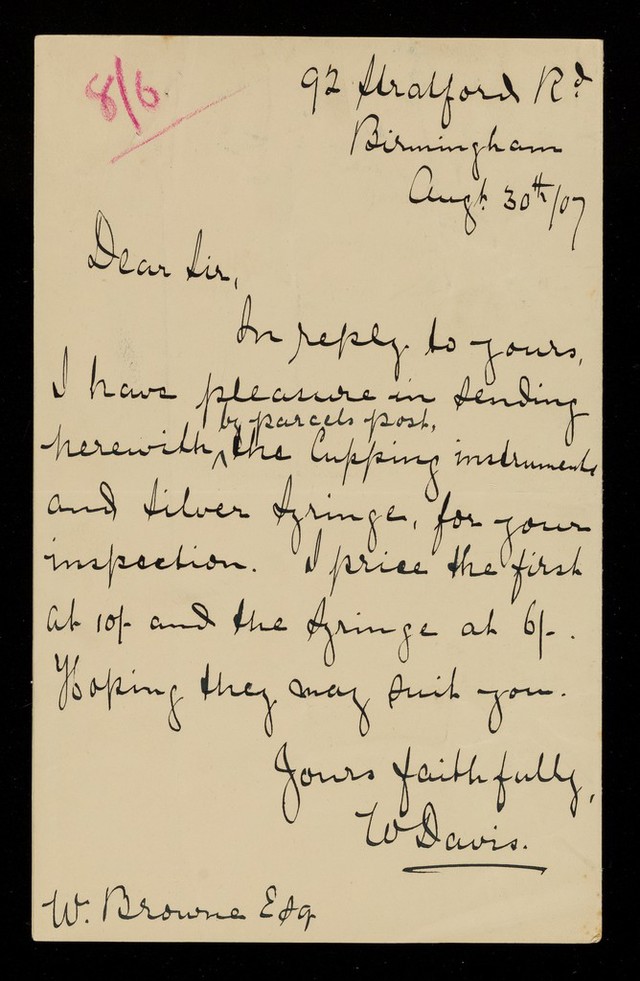 8/6
92 Stratford Rd
Birmingham
Augt. 30th/07
Dear Sir,
In reply to yours,
I have pleasure in sending
by parcels post,
herewith, the Cupping instruments
and Silver Syringe, for your
inspection. I price the first
at 10/- and the Syringe at 6/-.
Hoping they may suit you.
Yours faithfully,
W Davis.
W. Browne Esq